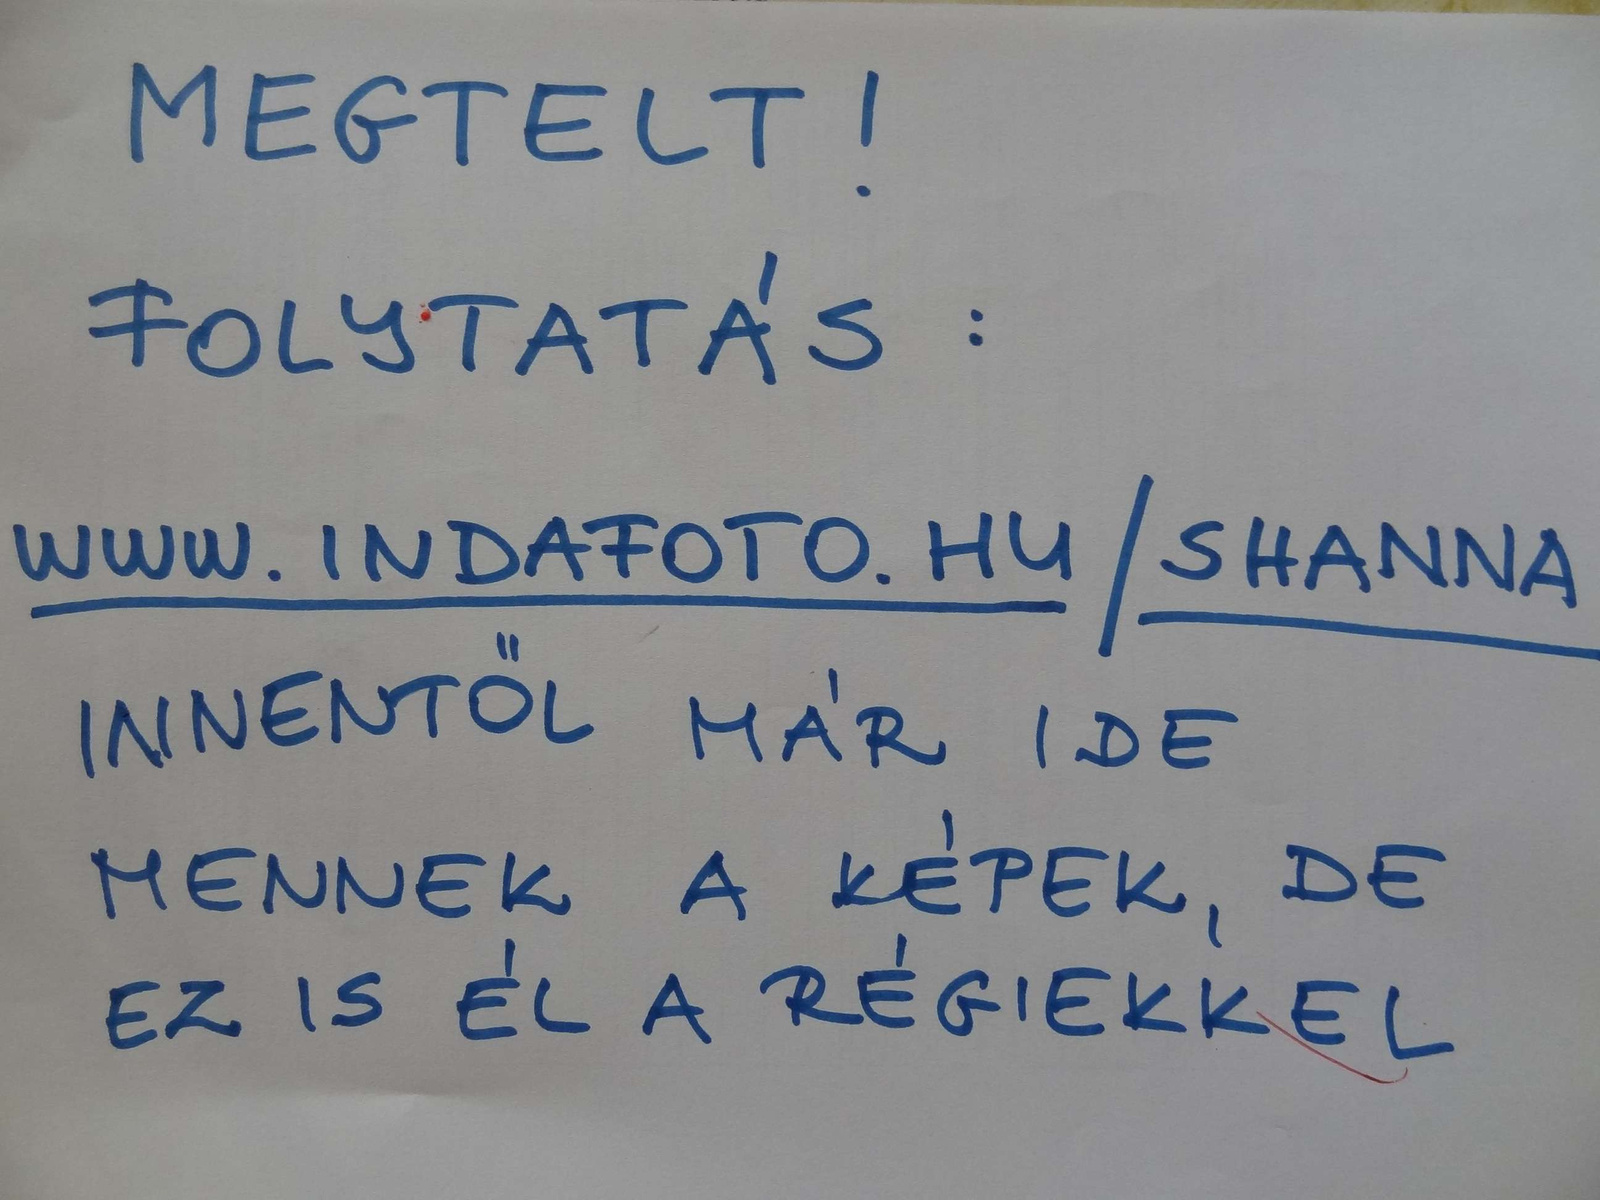 MEGTELT!
FOLYTATÁS:
WWW.INDAFOTO.HU/SHANNA
INNENTŐL MÁR IDE
MENNEK A KÉPEK, DE
EZ IS ÉL A RÉGIEKKEL